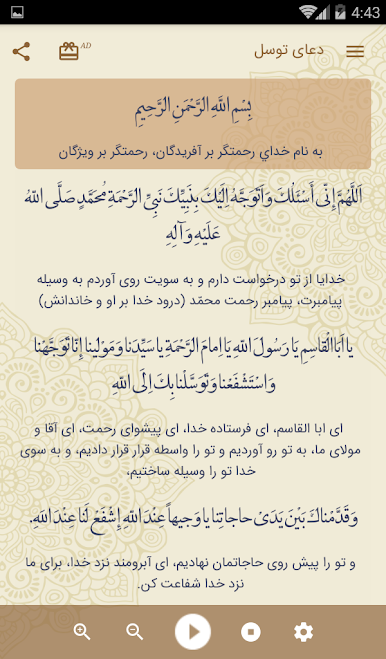 4:43
دعای توسل
AD
بِسْمِ اللَّهِ الرَّحْمَنِ الرَّحِيمِ
به نام خداي رحمتگر بر آفریدگان، رحمتگر بر ویژگان
اَللّهُمَّ اِنّی اَسْئَلُكَ وَ اَتَوَجَّهُ اِلَیْكَ بِنَبِیِّكَ نَبِیِّ الرَّحْمَةِ مُحَمَّدٍ صَلَّی اللهُ
عَلَیْهِ وَ آلِهِ
خدایا از تو درخواست دارم و به سویت روی آوردم به وسیله
پیامبرت، پیامبر رحمت محمّد (درود خدا بر او و خاندانش)
یا اَبَاالْقاسِمِ یا رَسُولَ اللهِ یا اِمامَ الرَّحْمَةِ یا سَیِّدَنا وَ مَوْلینا اِنّا تَوَجَّهْنا
وَ اسْتَشْفَعْنا وَ تَوَسَّلْنا بِكَ اِلَی اللهِ
ای ابا القاسم، ای فرستاده خدا، ای پیشوای رحمت، ای آقا و
مولای ما، به تو رو آوردیم و تو را واسطه قرار قرار دادیم، و به سوی
خدا تو را وسیله ساختیم،
وَ قَدَّمْناكَ بَیْنَ یَدَیْ حاجاتِنا یا وَجیهاً عِنْدَ اللهِ اِشْفَعْ لَنا عِنْدَ اللهِ.
و تو را پیش روی حاجاتمان نهادیم، ای آبرومند نزد خدا، برای ما
نزد خدا شفاعت کن.